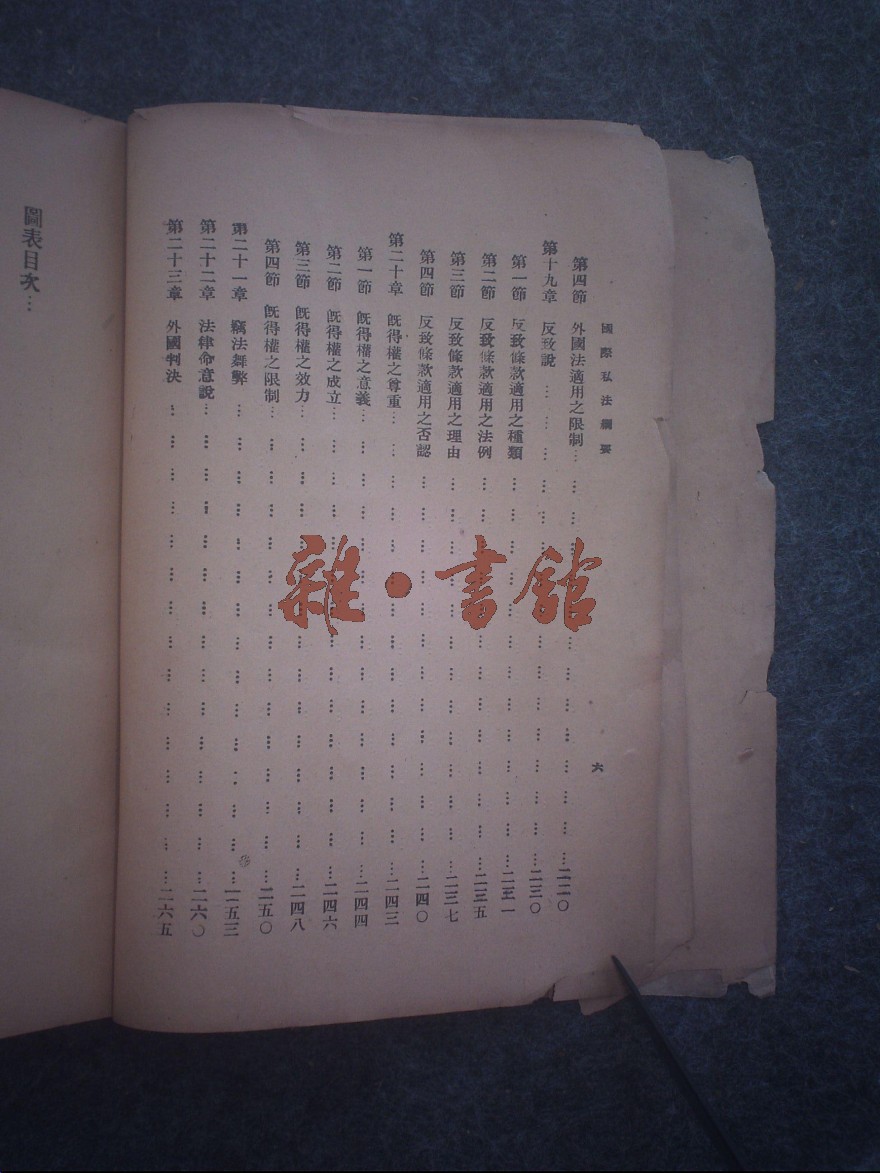 國際私法綱要
六
第四節 外國法適用之限制…………二二〇
第十九章 反致說…………二三〇
第一節 反致條款適用之種類…………二三一
第二節 反致條款適用之法例…………二三五
第三節 反致條款適用之理由…………二三七
第四節 反致條款適用之否認…………二四〇
第二十章 既得權之尊重…………二四三
第一節 既得權之意義…………二四四
第二節 既得權之成立…………二四六
第三節 既得權之效力…………二四八
第四節 既得權之限制…………二五〇
第二十一章 竊法舞弊…………二五三
第二十二章 法律命意說…………二六〇
第二十三章 外國判決…………二六五
圖表目次…
雜·書館